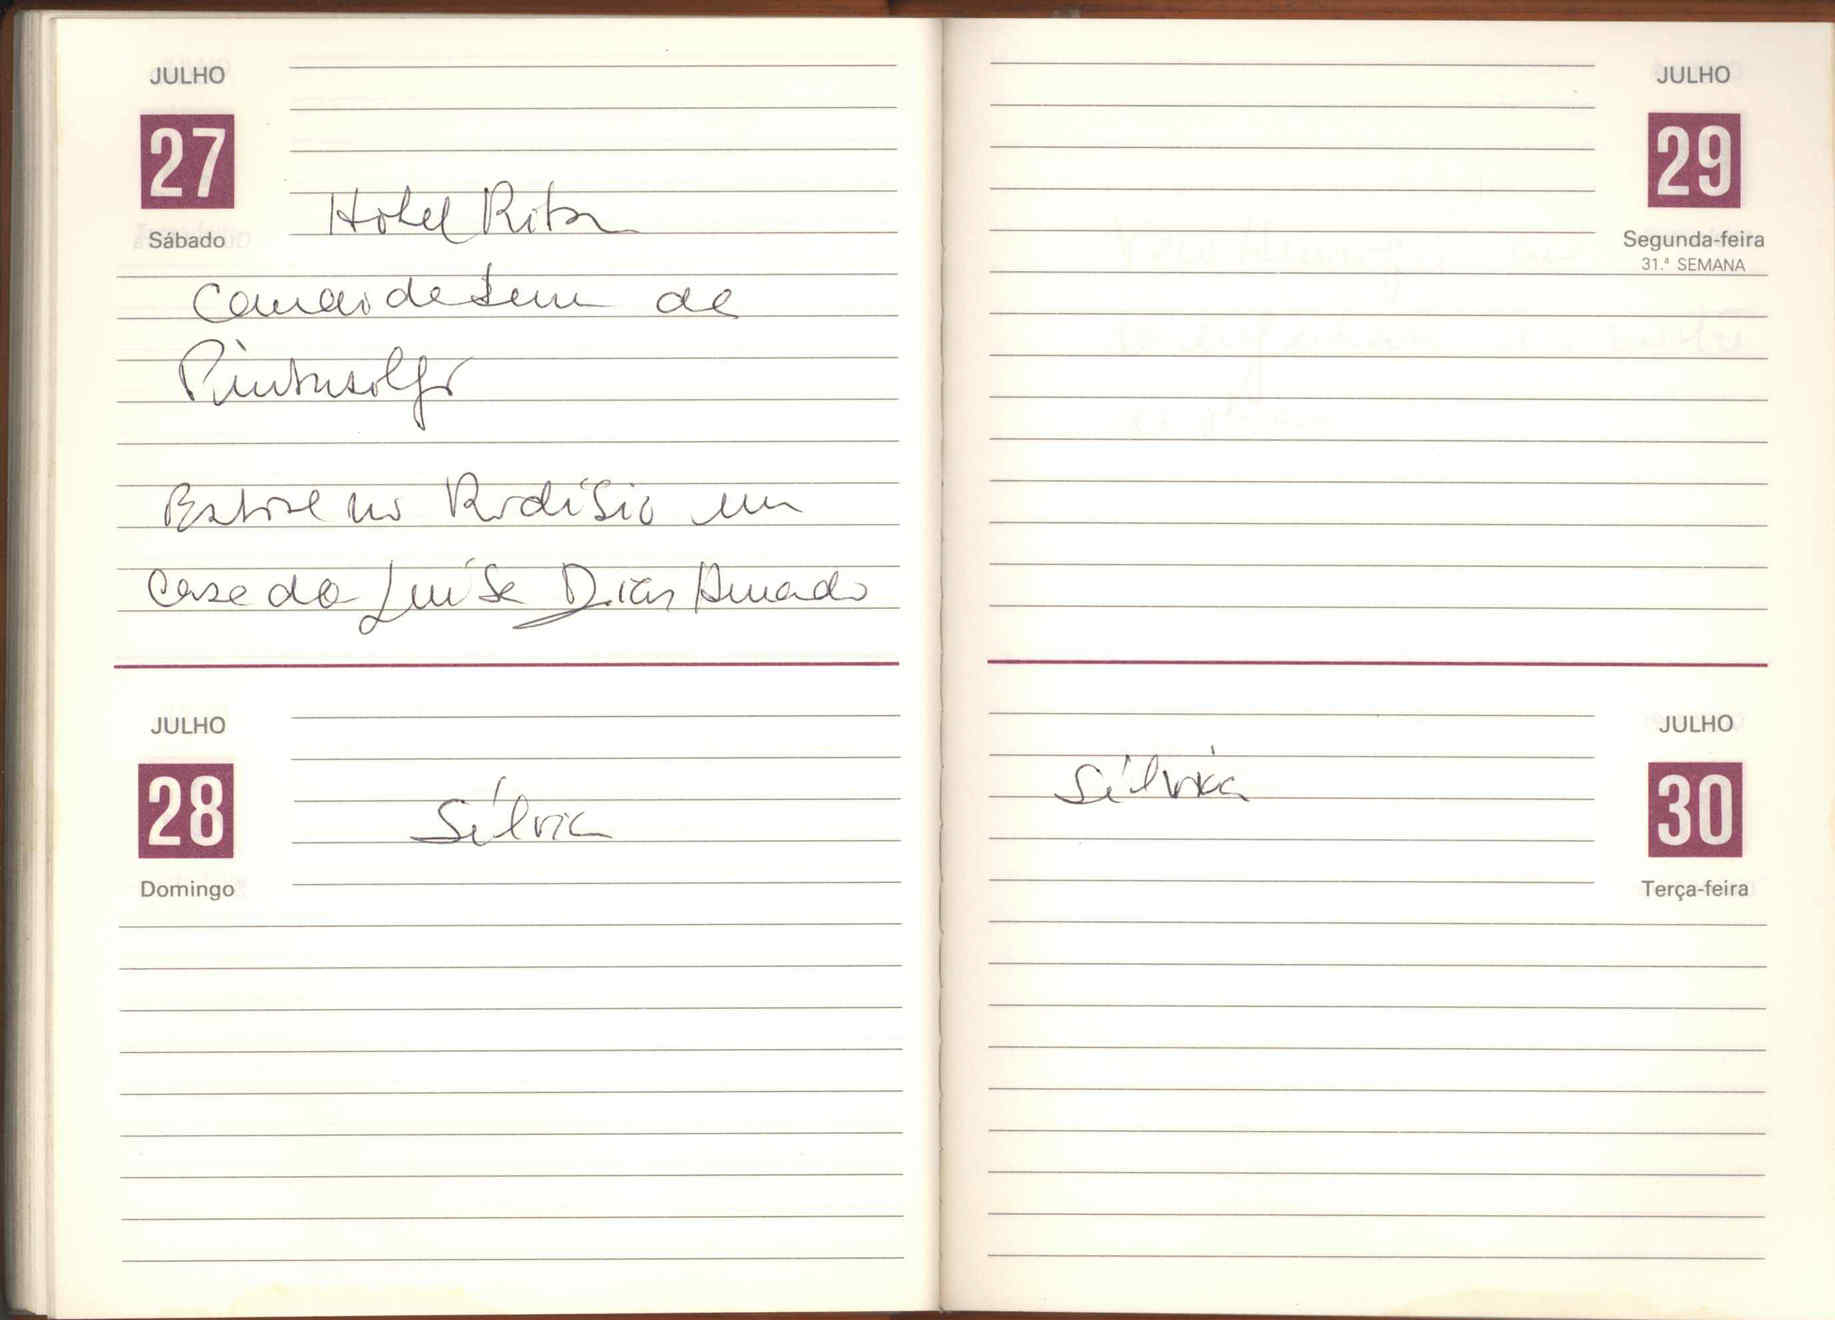 JULHO
27
Sábado
Hotel Ritz
de
Pintasilgo
Estive no Rodísio em
casa da Luísa Dias Amado
JULHO
28
Domingo
Sílvia
JULHO
29
Segunda-feira
31.ª SEMANA
JULHO
30
Terça-feira
Sílvia